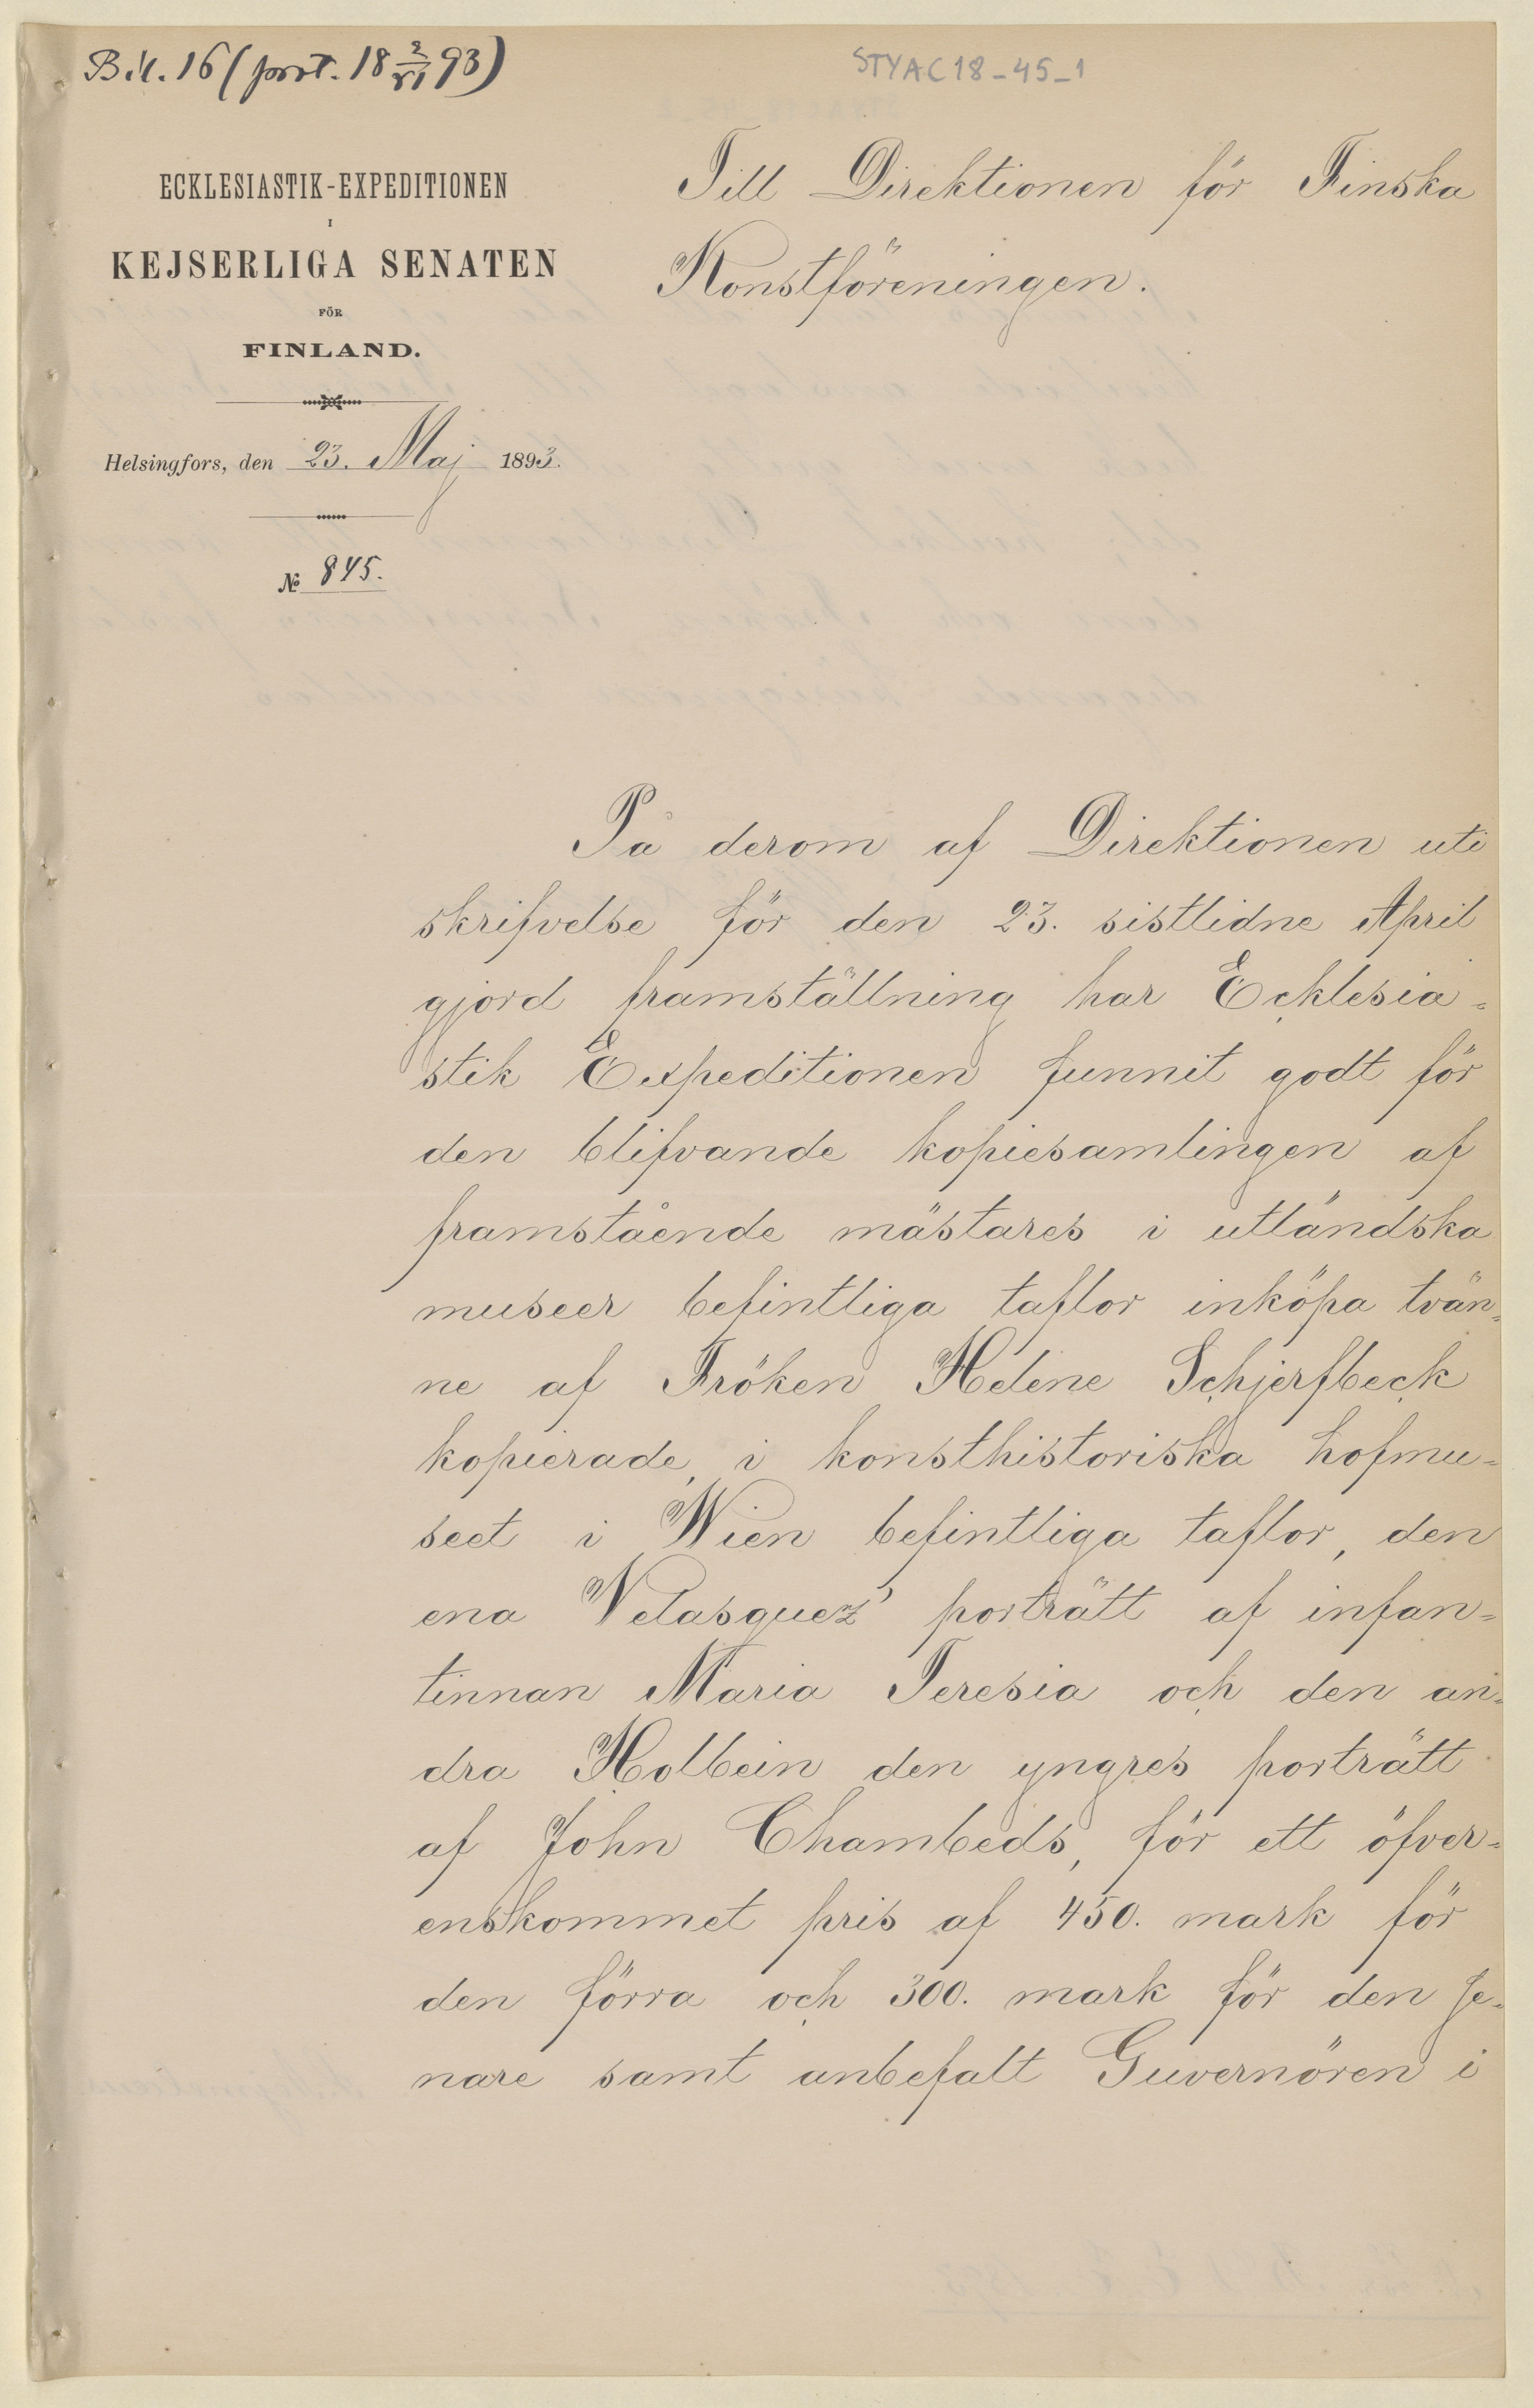 Bil. 16 (prot. 18 2/VI 93)
STYAC18-45-1
ECKLESIASTIK-EXPEDITIONEN
I
KEJSERLIGA SENATEN
FÖR
FINLAND.
Helsingfors, den 23. Maj 1893.
№ 845.
Till Direktionen för Finska
Konstföreningen.
På derom af Direktionen uti
skrifvelse för den 23. sistlidne April
gjord framställning har Ecklesia-
stik Expeditionen funnit godt för
den blifvande kopiesamlingen af
framstående mästares i utländska
museer befintliga taflor inköpa tvän-
ne af Fröken Helene Schjerfbeck
kopierade, i konsthistoriska hofmu-
seet i Wien befintliga taflor, den
ena Velasquez' porträtt af infan-
tinnan Maria Teresia och den an-
dra Holbein den yngres porträtt
af John Chambeds, för ett öfver-
enskommet pris af 450. mark för
den förra och 300. mark för den se-
nare samt anbefalt Guvernören i